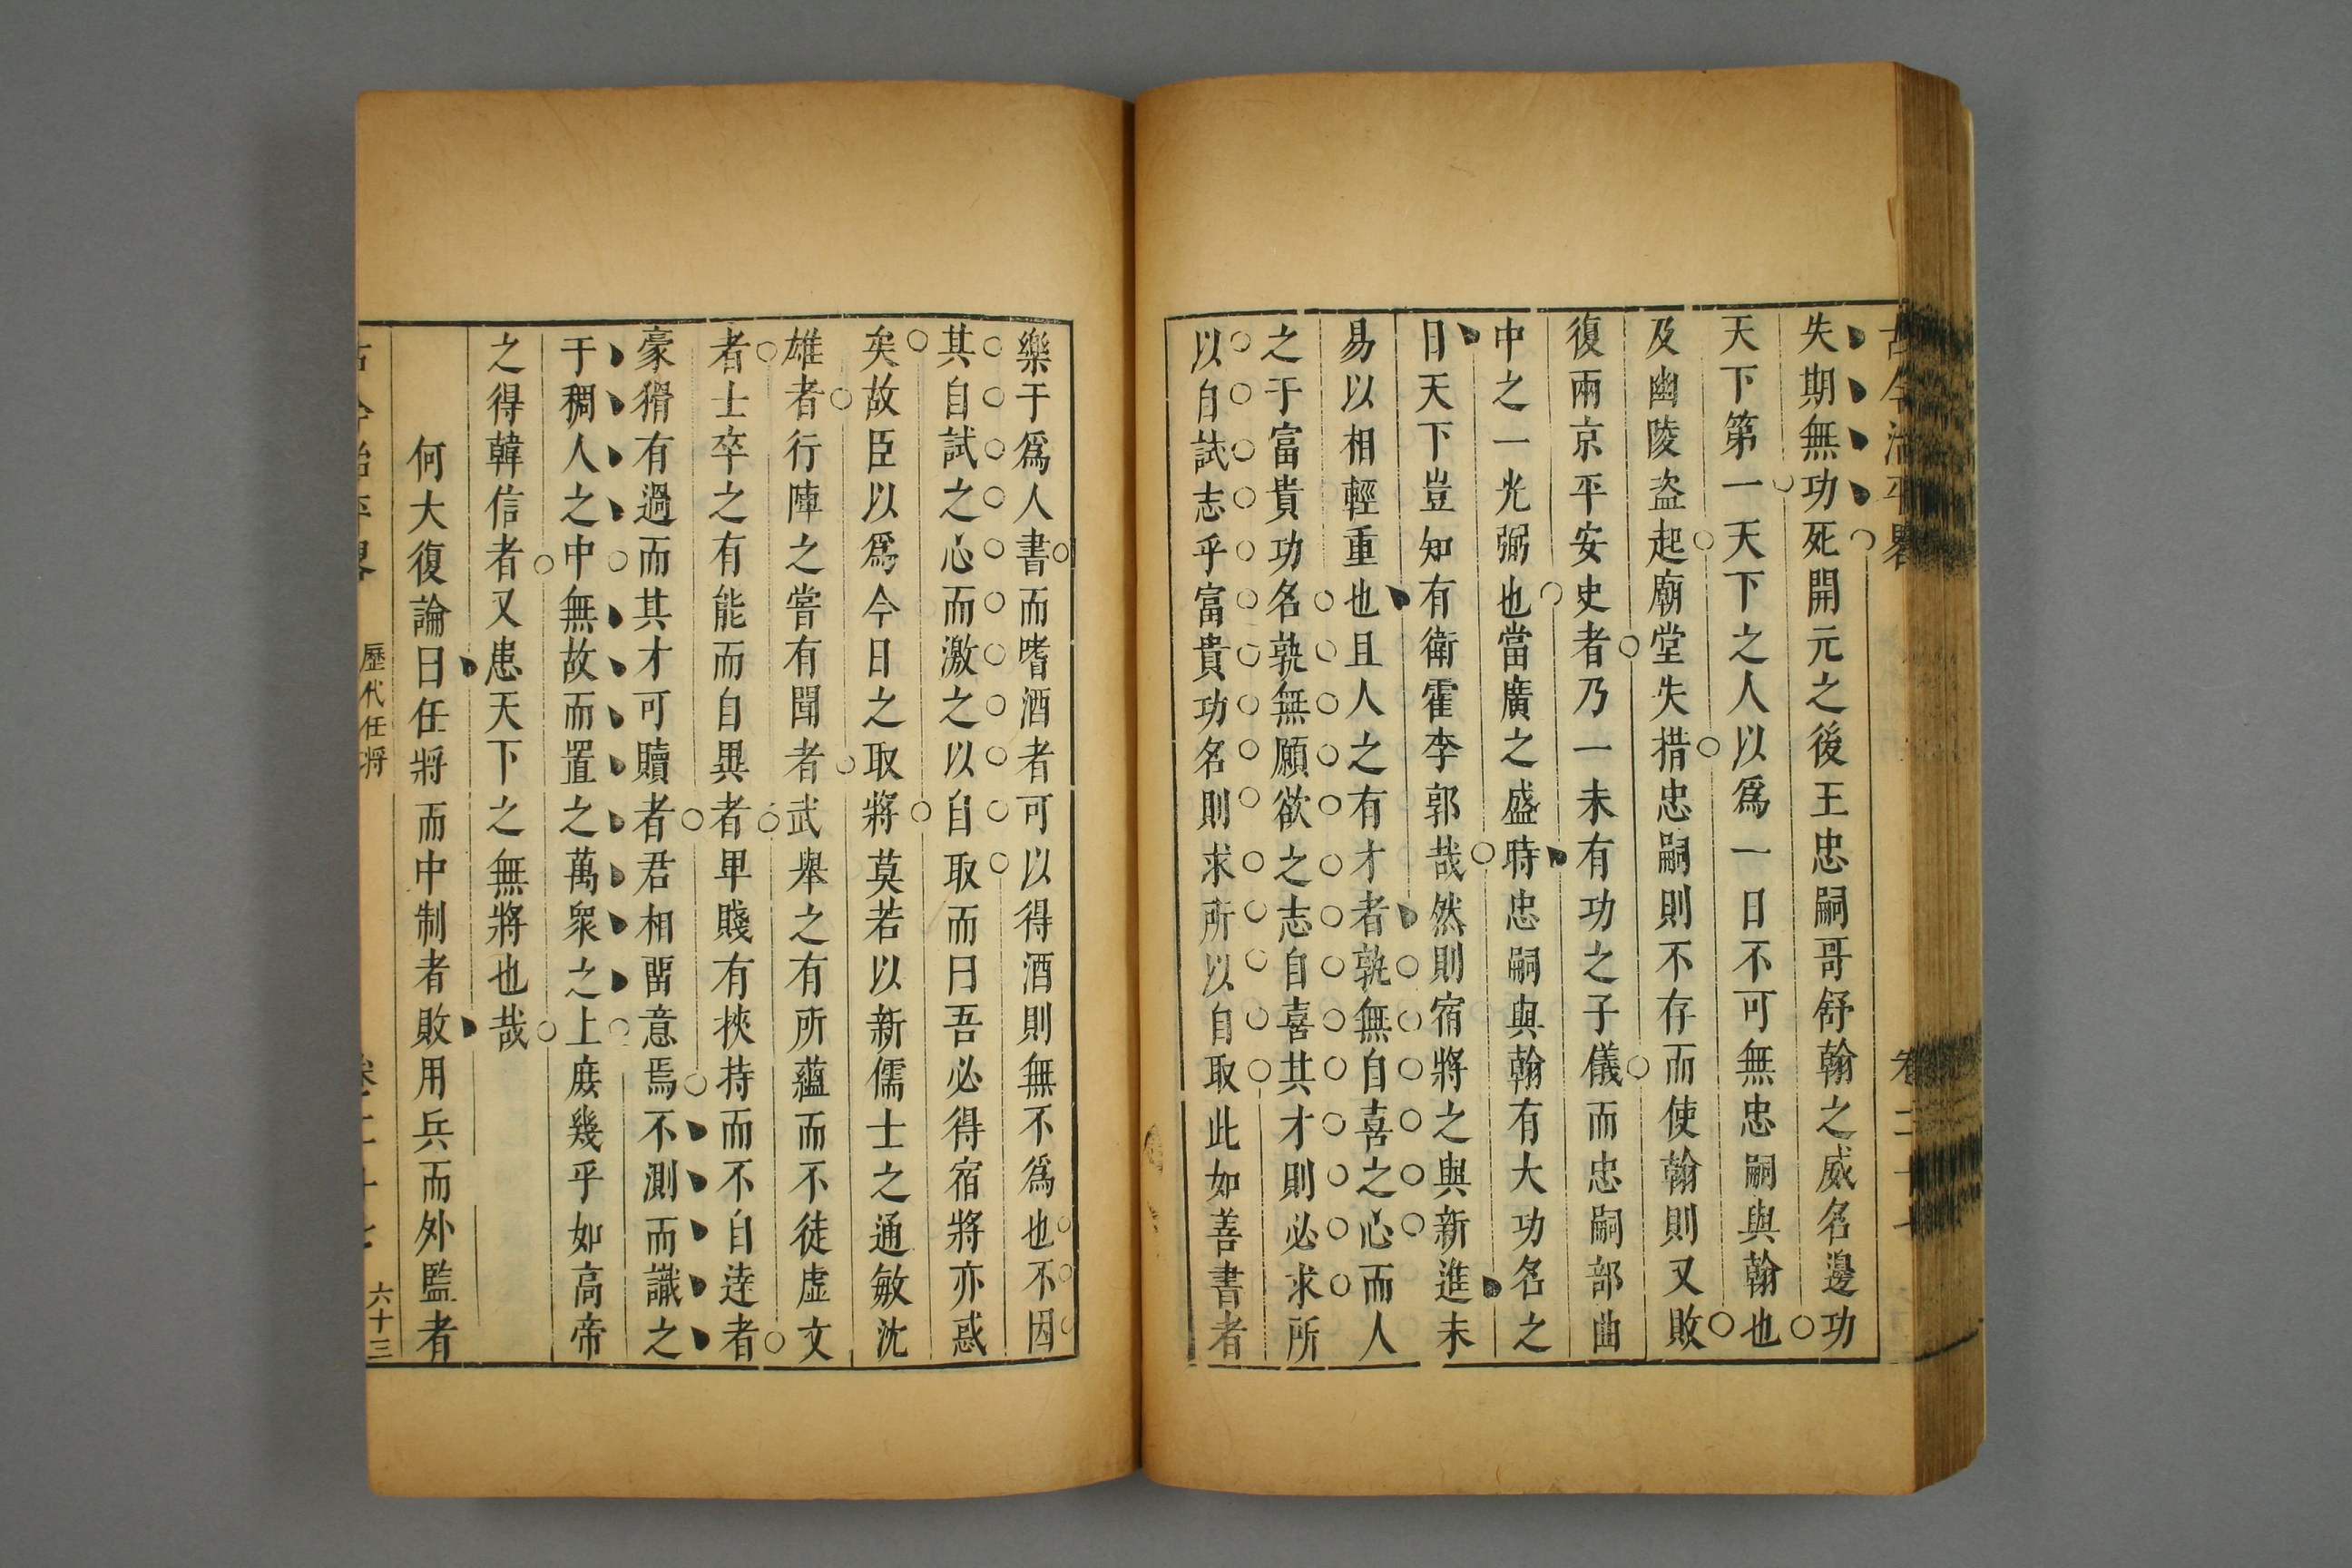 古今治平畧 卷二十七
失期無功死開元之後王忠嗣哥舒翰之威名邊功
天下第一天下之人以爲一日不可無忠嗣與翰也
及幽陵盗起廟堂失措忠嗣則不存而使翰則又敗
復兩京平安史者乃一未有功之子儀而忠嗣部曲
中之一光弼也當廣之盛時忠嗣與翰有大功名之
日天下豈知有衛霍李郭哉然則宿將之與新進未
易以相輕重也且人之有才者孰無自喜之心而人
之于富貴功名孰無願欲之志自喜其才則必求所
以自試志乎富貴功名則求所以自取此如善書者
樂于爲人書而嗜酒者可以得酒則無不爲也不因
其自試之心而激之以自取而曰吾必得宿將亦惑
矣故臣以爲今日之取將莫若以新儒士之通敏沈
雄者行陣之嘗有聞者武舉之有所蘊而不徒虛文
者士卒之有能而自異者卑賤有挾持而不自逹者
豪猾有過而其才可贖者君相留意焉不測而識之
于稠人之中無故而置之萬衆之上庶幾乎如高帝
之得韓信者又患天下之無將也哉
何大復論曰任將而中制者敗用兵而外監者
古今治平畧 歷代任將 卷二十七 六十三